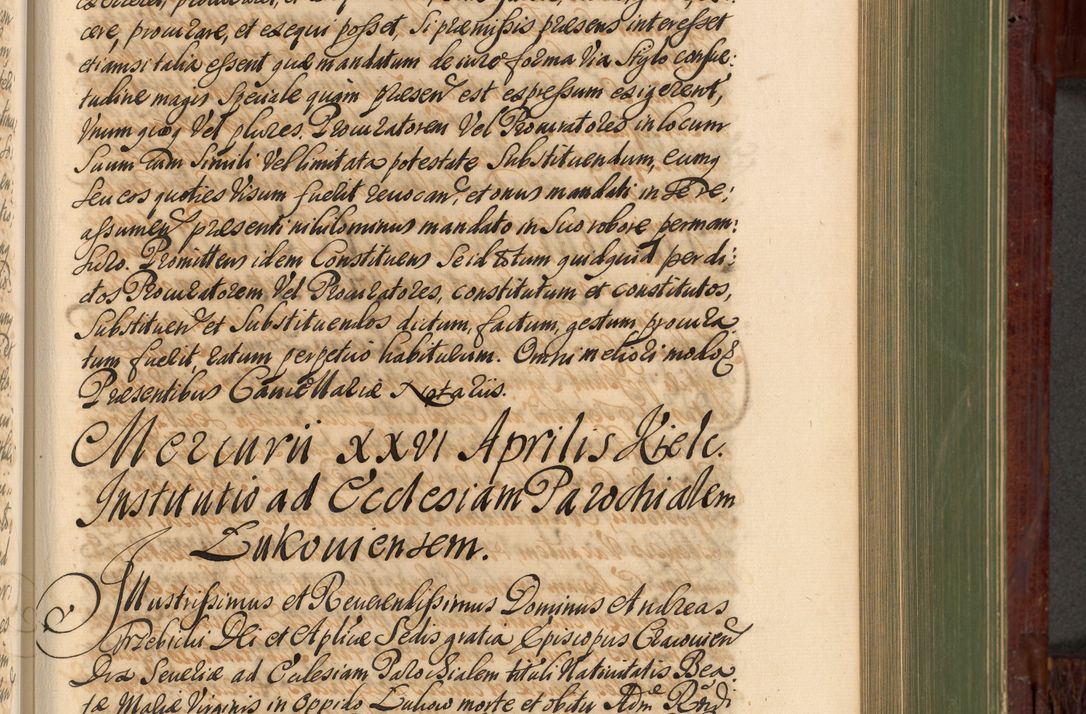 cere, procurare, et exequi posset, si præmissis præsens interesset
etiamsi talia essent quæ mandatum de iure forma via stylo consue:
tudine magis speciale quam præsen est expressum exigerent,
Unumquoq vel plures Procuratorem vel Procuratores in locum
suum cum simili vel limitata potestate substituendum, eumq
seu eos quoties visum fuerit revocan, et onus mandati in se re:
assumen præsenti nihilominus mandato in suo robore perman:
suro. Promittens idem Constituens se id totum quidquid per di:
ctos Procuratorem vel Procuratores, constitutum et constitutos,
Substituen et Substituendos dictum, factum, gestum, procura
tum fuerit, ratum perpetuo habiturum. Omni meliori modo
Præsentibus Cancellariæ Notariis.
Mercurii XXVI Aprilis Kielc.
Institutio ad Ecclesiam Parochialem
Zukoviensem.
Illustrissimus et Reverendissimus Dominus Andreas
Trzebicki Dei et Aplicæ Sedis gratia Episcopus Cracovien
Dux Severiæ ad Ecclesiam Parochialem tituli Nativitatis Bea
tæ Mariæ Virginis in oppido Zukow morte et obitu Adm Rndi